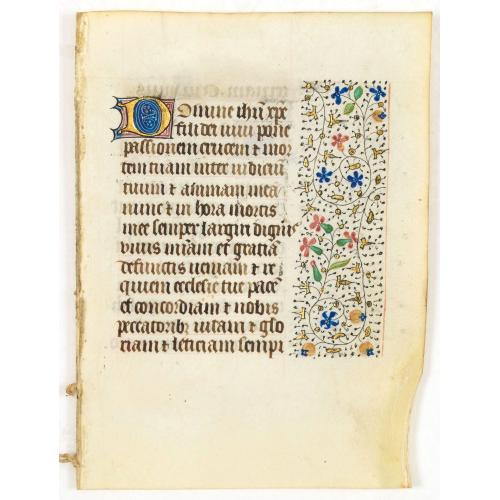 Domine ihu xpe
fili dei uiui pone
passionem crucem et mor
tem tuam inter iudiciū
tuum et animam meā
nunc et in hora mortis
mee semper largiri digneris
viuis miam et gratiā
defunctis ueniam et re
quiem ecclesie tue pacē
et concordiam et nobis
peccatoribȝ uitam et glo
riam et leticiam sempi